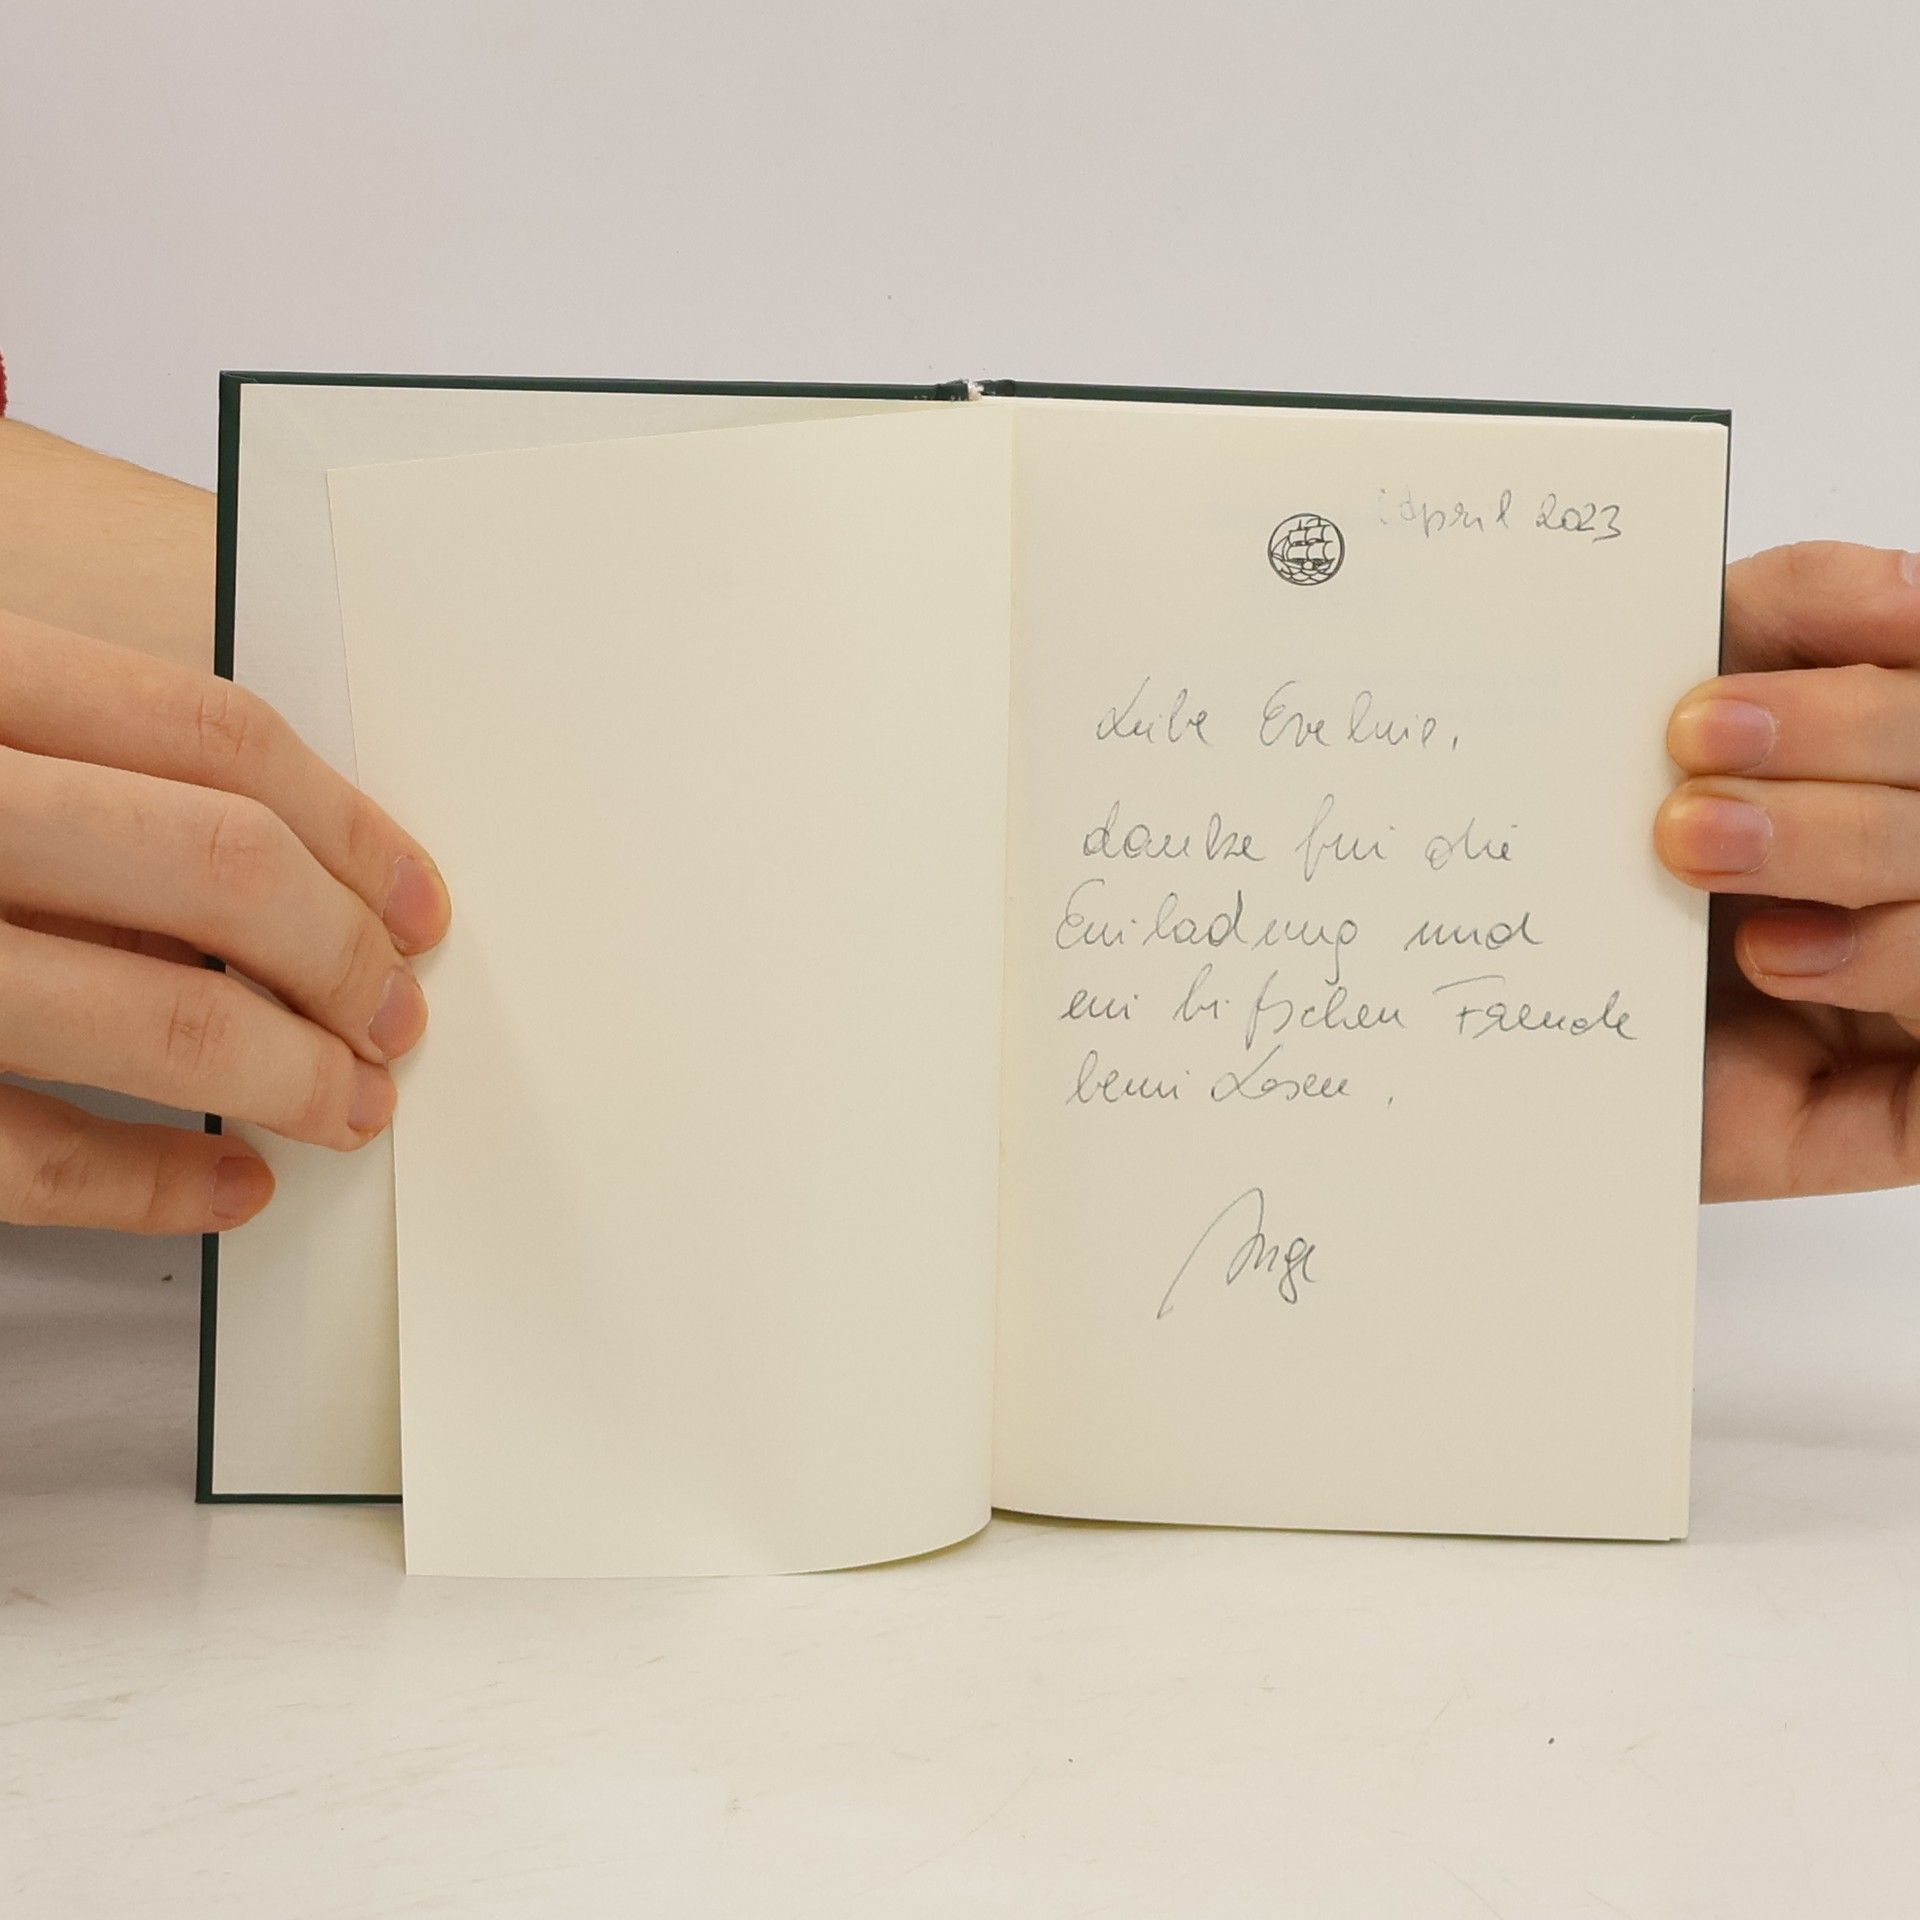 April 2023
Liebe Evelnie,
danke für die
Einladung und
ein bißschen Freude
beim Lesen.
Inge